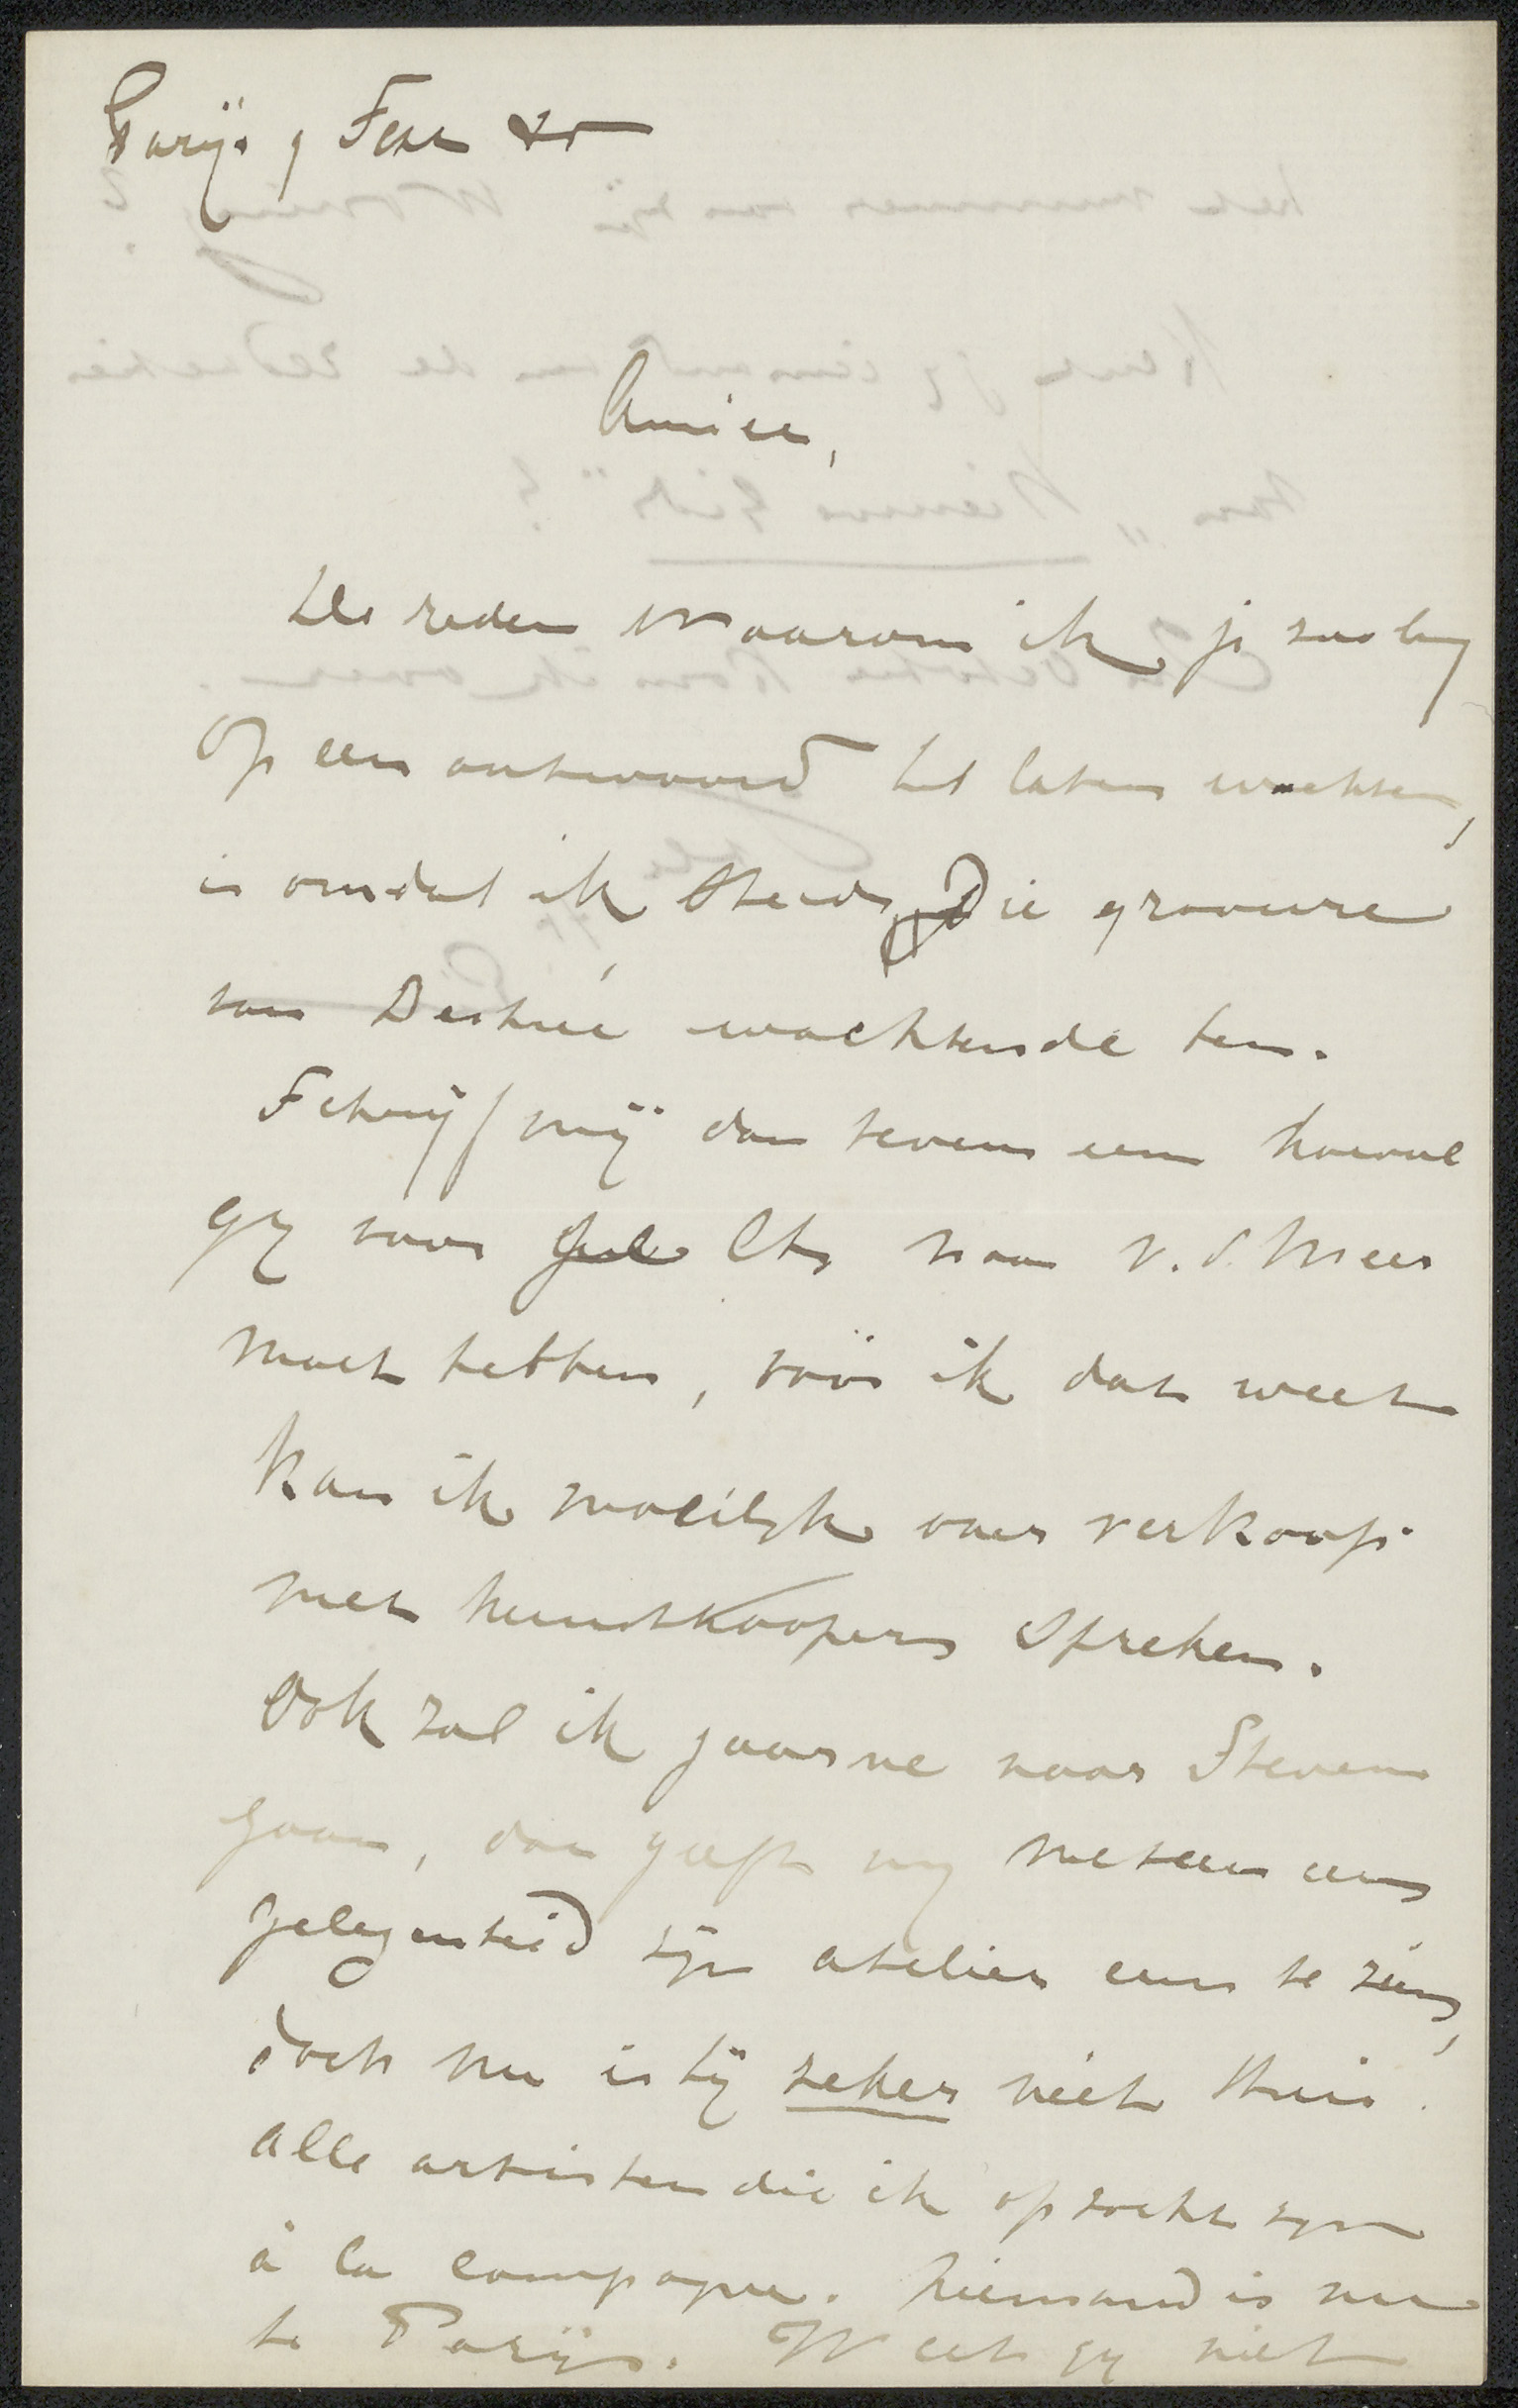 Parijs 9 Sept 85
Amice,
De reden waarom ik je zoo lang
op een antwoord liet laten wachten,
is omdat ik steeds die gravure
van Destrée wachtende ben.
Schrijf mij dan tevens eens hoeveel
gij voor Ets naar v. d. Meer
moet hebben, vóór ik dat weet
kan ik moeilijk over verkoop
met kunstkoopers spreken.
Ook zal ik gaarne naar Stevens
gaan, dan geeft mij meteen eens
gelegenheid zijn atelier eens te zien,
doch nu is hij zeker niet thuis.
alle artisten die ik opzocht zijn
à la campagne. Niemand is nu
te Parijs. Weet gij niet